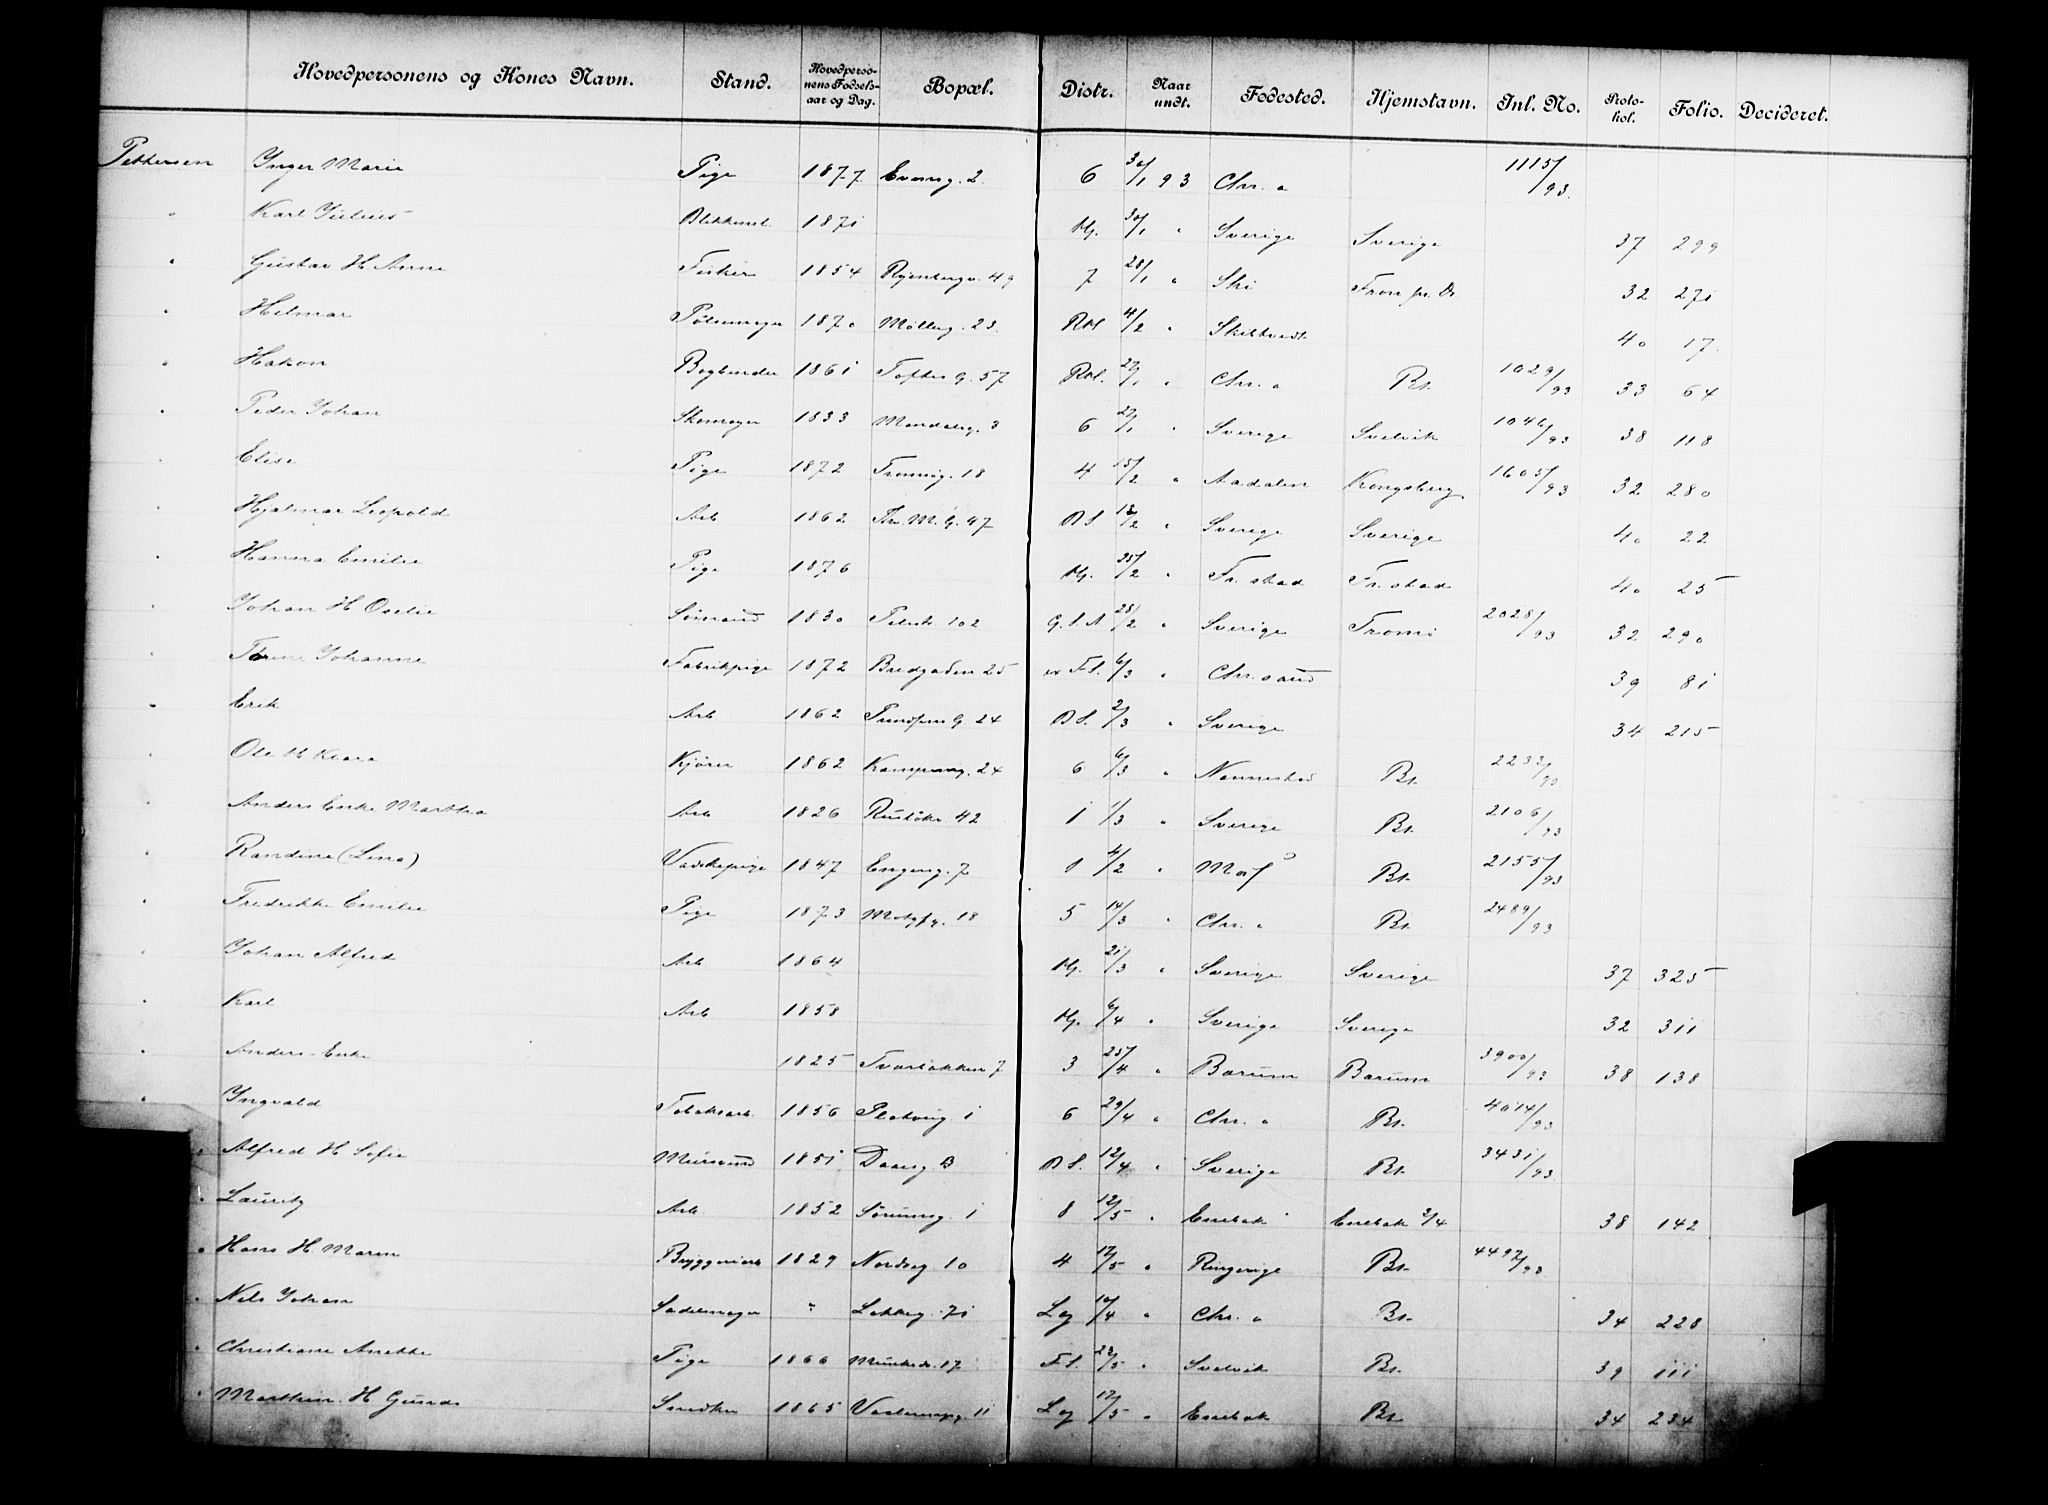 Hovedpersonens og Kones Navn. Stand. Hovedperso-nens Fødsels-aar og Dag. Bopæl. Distr. Naar undt. Fødested. Hjemstavn. Inl. No. Proto-kol. Folio. Decideret.
Pettersen Ynger Marie Pige 1877 2. 6 30/1 93 Chr.a 1115/93.
" Karl Julius 1871 Hj. 30/1 " Sverige Sverige 37 299
" Gustav H Anna Fisker 1854 49 7 28/1 " Ski 32 271
" Helmar Pølsemager 1870 Møllerg. 23. Rkl 4/2 " 40 17.
" Hakon Bogbinder 1861 Toftes G. 57 Rkl. 27/1 " Chr.a Bt. 1029/93 33 64
" Peder Johan Skomager 1833 Mandalsg. 3 6 27/1 " Sverige Svelvik 1046/93 38 118
" Elise Pige 1872 Tromsøg. 18 4 15/2 " Aadalen Kongsberg 1605/93 32 280
" Hjalmar Leopold Arb 1862 Thv. M. G. 47 BS 13/2 " Sverige Sverige 40 22
" Hanna Emilie Pige 1876 Hj. 25/2 " Fr.stad Fr.stad 40 25
" Johan H Oselie Sømand 1830 102 G.S.A 28/2 " Sverige Tromø 2028/93 32 290
" Johanne Fabrikpige 1872 Bredgaden 25 Fl. 6/3 " Chr.sand 39 81
" Erik Arb 1862 G 24 BS. 2/3 " Sverige 34 215
" Ole H Klara Kjører 1862 Kampensg. 24 6 6/3 " Nannestad Bt. 2232/93
" Anders Enke Marthea Arb 1826 Ruseløkv 42 1 1/3 " Sverige Bt. 2106/93
" Randine (Lina) Vaskepige 1847 Engeng. 7 1 4/2 " Bt. 2155/93
" Fredrikke Emilie Pige 1873 Motzfg. 18 5 14/3 " Chr.a Bt. 2489/93
" Johan Alfred Arb 1864 Hj. 21/3 " Sverige Sverige 37 325
" Karl Arb 1858 Hj. 6/4 " Sverige Sverige 32 311
" Anders Enke 1825 Tværbakken 7 3 25/4 " Bærum Bærum 3900/93 38 138
" Yngvald Tobaksarb. 1856 1 6 29/4 " Chr.a Bt. 4014/93
" Alfred H Sofie Mursvend 1851 BS. 12/4 " Sverige Bt. 3431/93
" Lauritz Arb 1852 Sørumsg. 1 8 12/5 " Enebak Enebak 2/4 38 142
" Hans H Maren Bryggeriarb 1829 Nordreg 10 4 12/5 " Ringerige Bt. 4492/93
" Nels Johan Sadelmager " Løkkeg. 71 Lg 10/4 " Chr.a Bt. 34 228
" Christiane Anette Pige 1866 Munkeds. 17 Fl. 23/5 " Svelvik Bt. 39 111
" Marthin H Gunda Snedker 1865 11 Lg 17/5 " Enebak Bt. 34 234